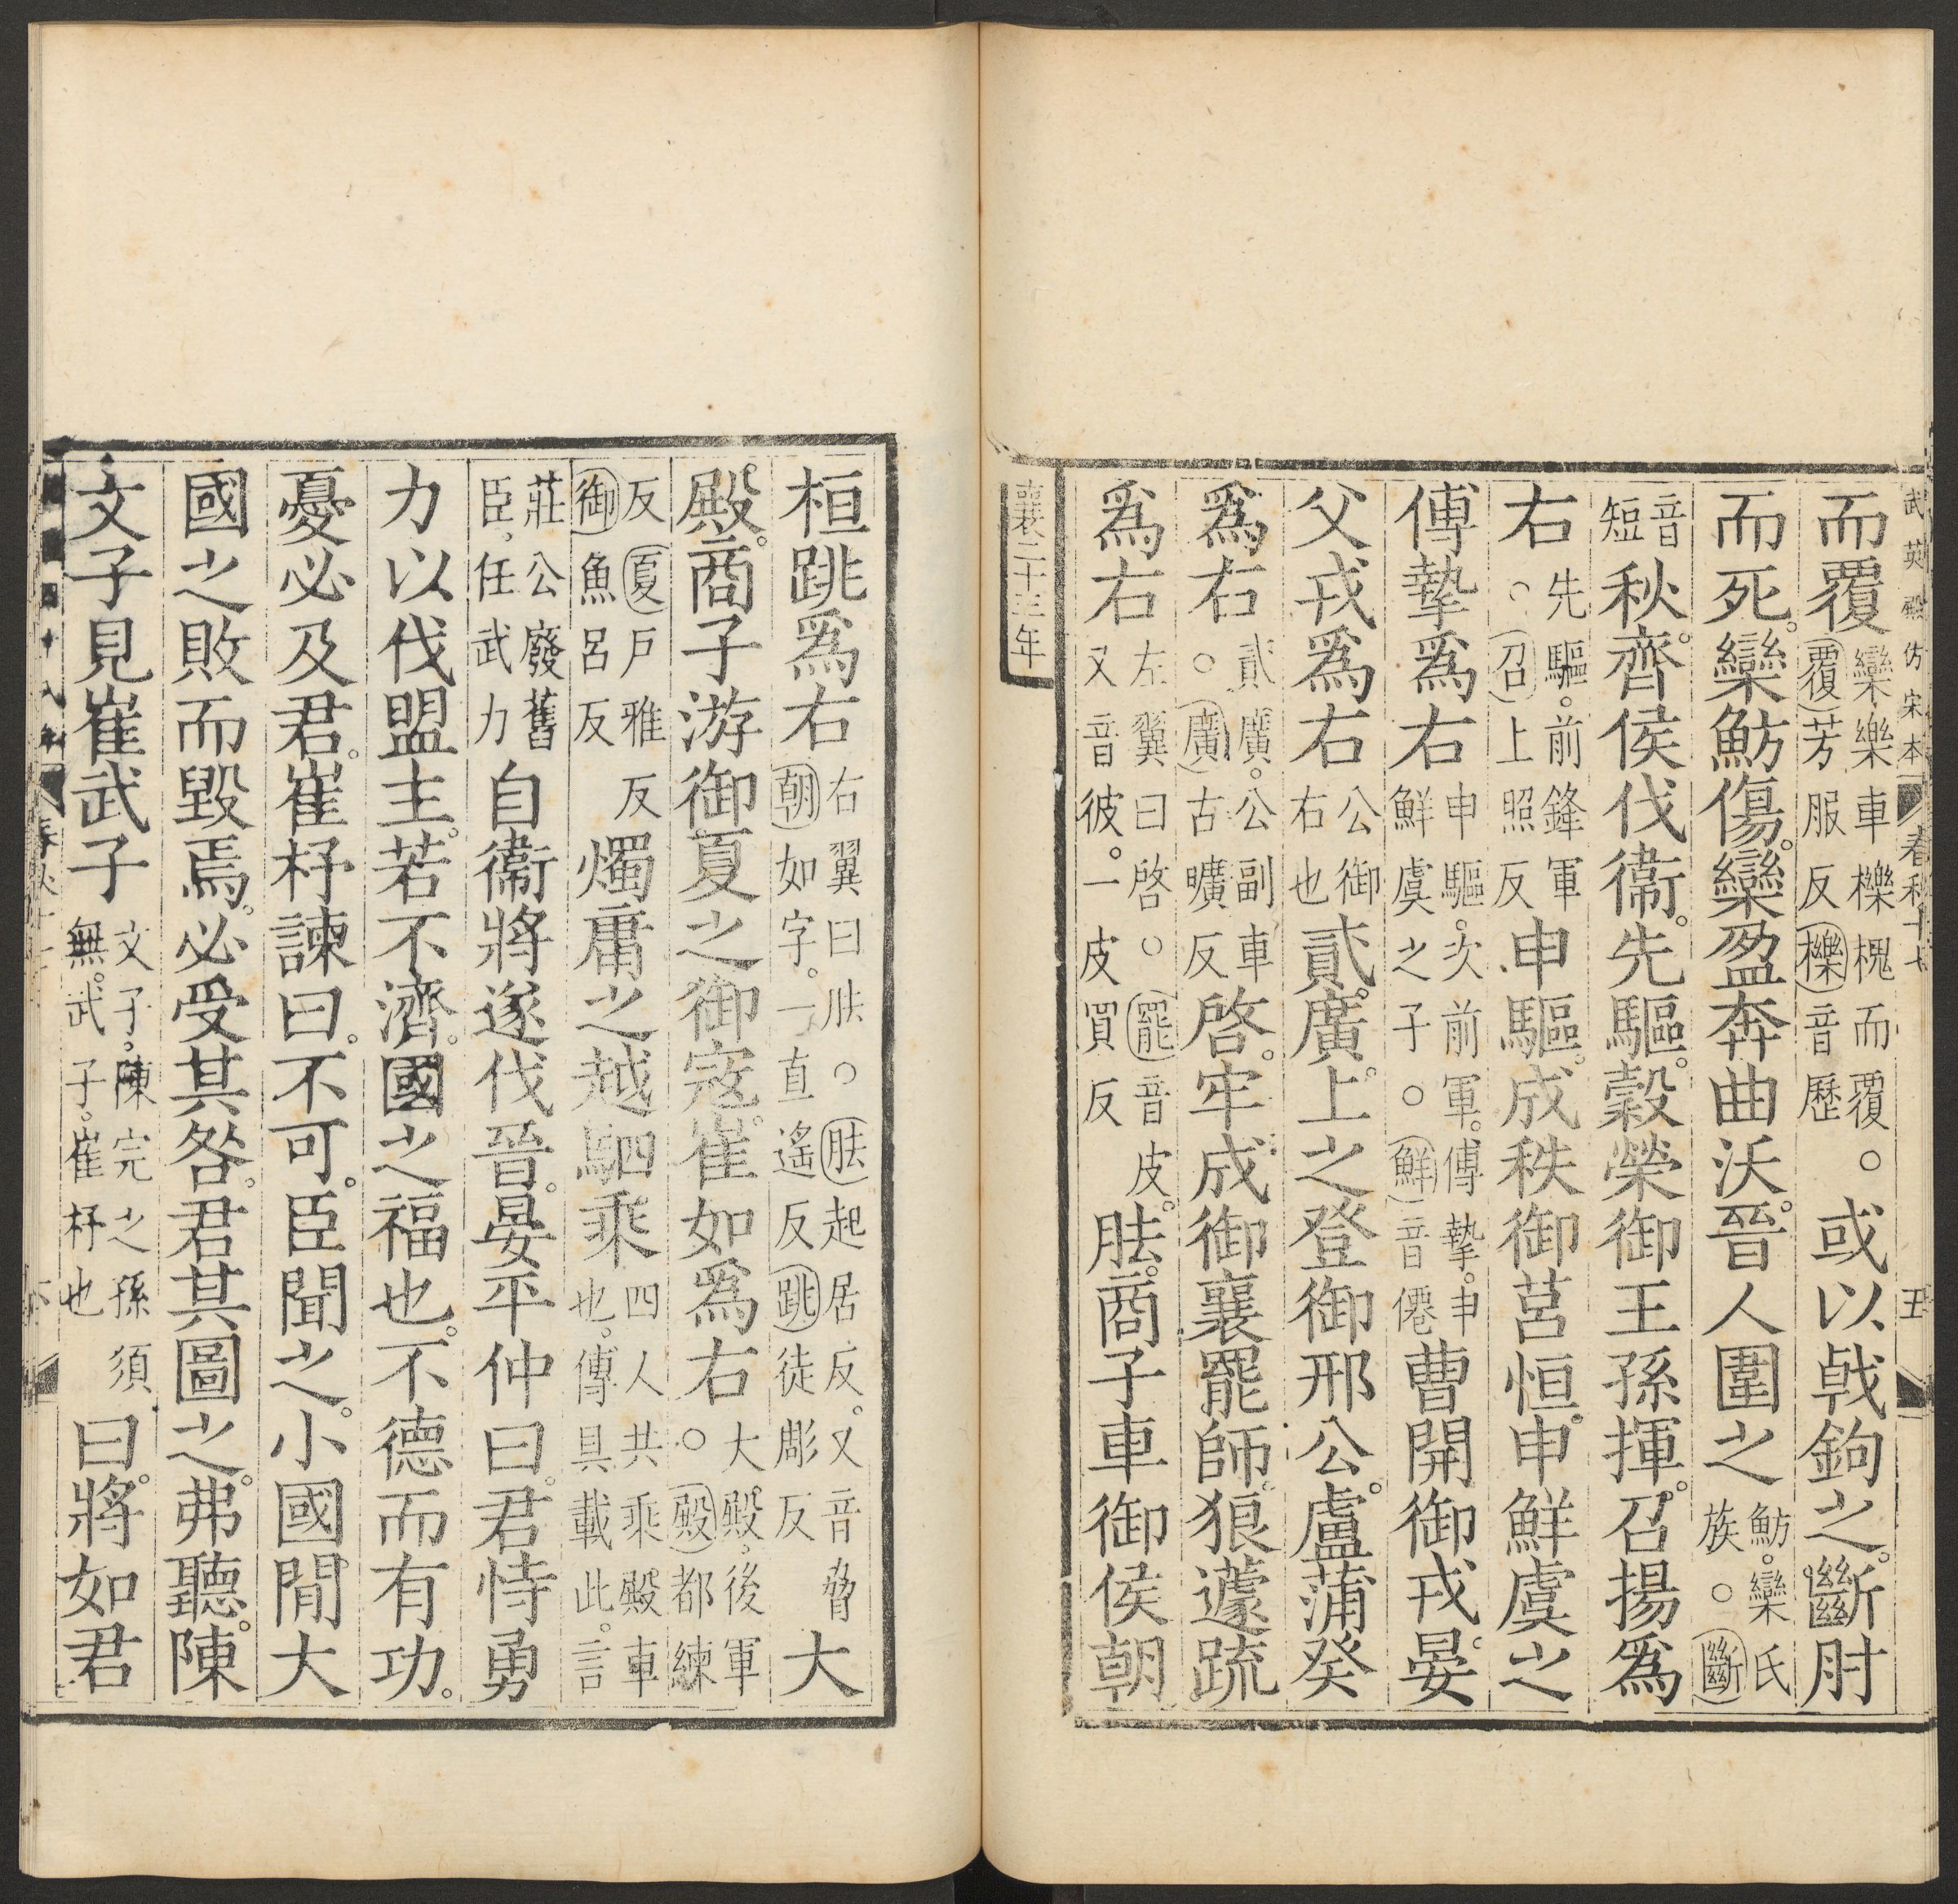 武英殿仿宋本 春秋十七 五
而覆欒樂車櫟槐而覆○覆芳服反櫟音歷或以戟鉤之斷肘
而死欒魴傷欒盈奔曲沃晉人圍之魴欒氏族○斷
音短秋齊侯伐衞先驅穀榮御王孫揮召揚爲
右先驅前鋒軍○召上照反申驅成秩御莒恒申鮮虞之
傅摯爲右申驅次前軍傅摯申鮮虞之子○鮮音僊曹開御戎晏
父戎爲右公御右也貳廣上之登御邢公盧蒲癸
爲右貳廣公副車○廣古曠反啓牢成御襄罷師狼蘧疏
爲右左翼曰啓○罷音皮又音彼一皮買反胠商子車御侯朝
襄二十三年
桓跳爲右右翼曰胠○胠起居反又音脅朝如字一直遙反跳徒彫反大
殿商子游御夏之御寇崔如爲右大殿後軍○殿都練
反夏戶雅反御魚呂反燭庸之越駟乘四人共乘殿車也傳具載此言
莊公廢舊臣任武力自衞將遂伐晉晏平仲曰君恃勇
力以伐盟主若不濟國之福也不德而有功
憂必及君崔杼諫曰不可臣聞之小國閒大
國之敗而毀焉必受其咎君其圖之弗聽陳
文子見崔武子文子陳完之孫須無武子崔杼也曰將如君